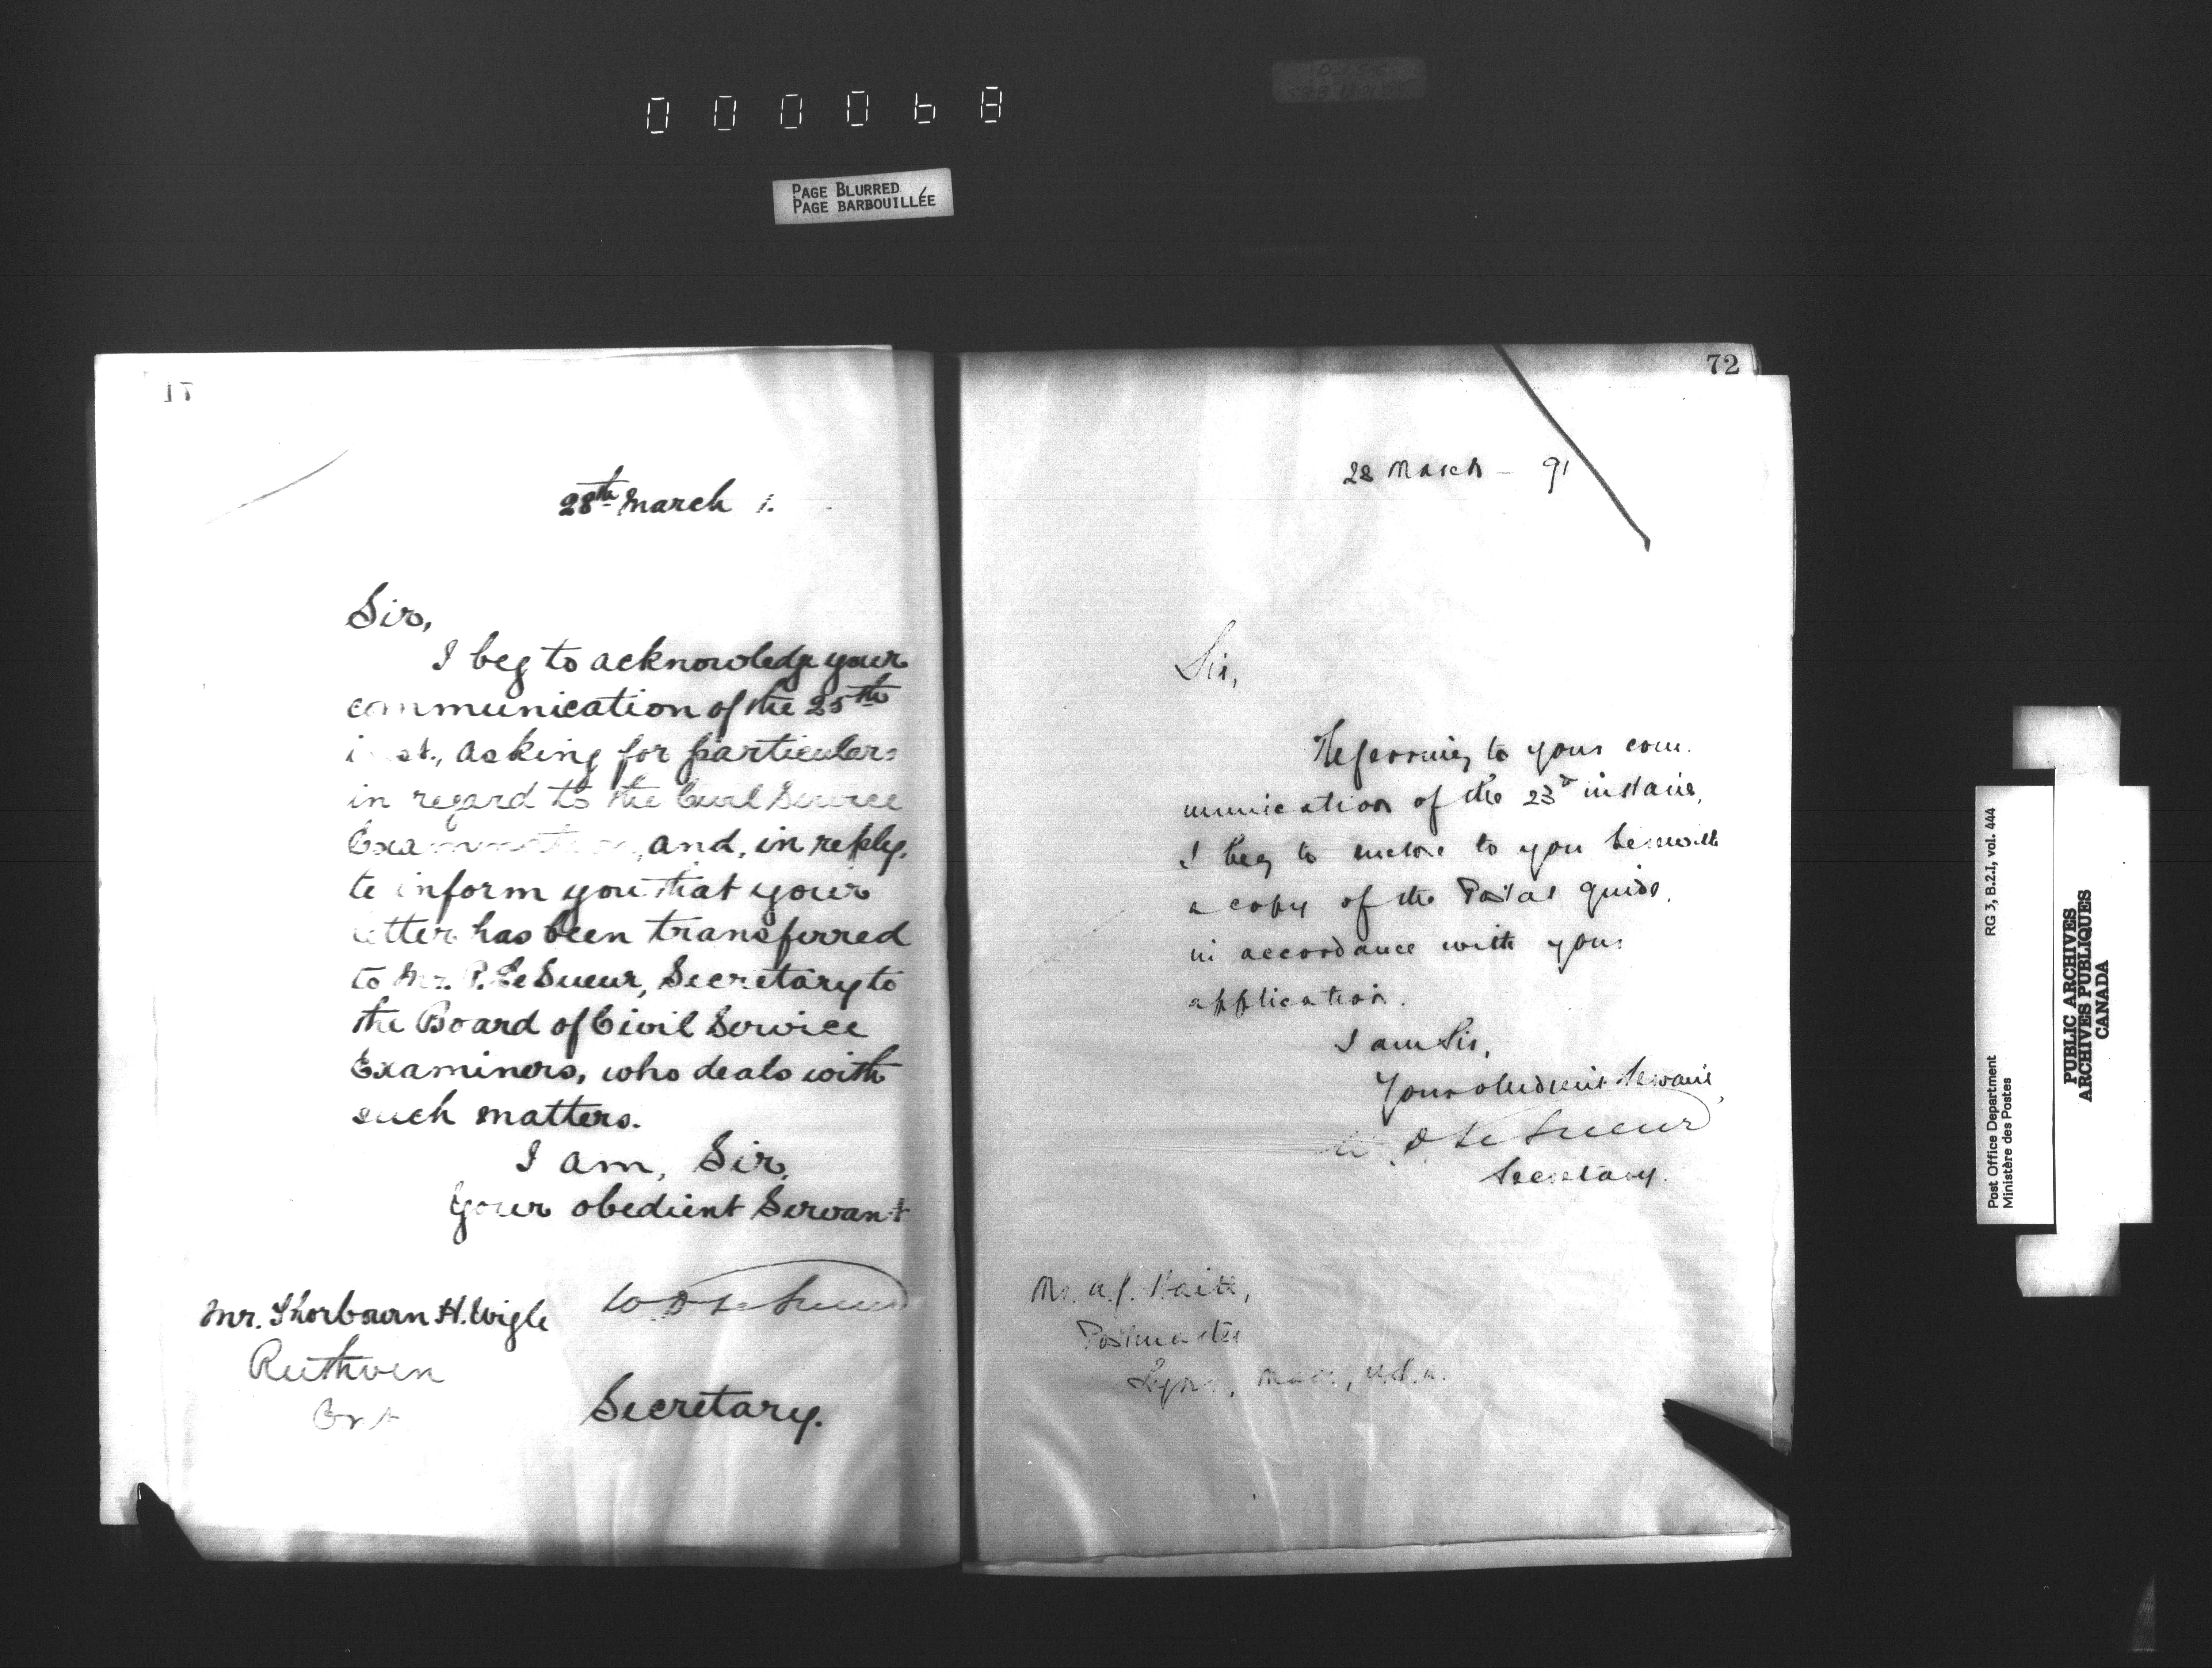 000068
PAGE BLURRED
PAGE BARBOUILLÉE
28th March 1.
Sir,
I beg to acknowledge your
communication of the 25th
inst., asking for particulars
in regard to the Civil Service
Examination, and, in reply,
to inform you that your
letter has been transferred
to Mr. P. LeSueur, Secretary to
the Board of Civil Service
Examiners, who deals with
such matters.
I am, Sir,
Your obedient Servant
W D LeSueur
Mr. Thorburn H. Wigle
Ruthven
Ont
Secretary.
72
28 March - 91
Sir,
Referring to your com-
munication of the 23d instant,
I beg to enclose to you herewith
a copy of the Postal guide,
in accordance with your
application.
I am Sir,
Your obedient Servant,
W. D LeSueur
Secretary.
Mr. A.
Postmaster
Lynn, Mass, U.S.A.
Post Office Department
Ministère des Postes
RG 3, B.2.I, vol. 444
PUBLIC ARCHIVES
ARCHIVES PUBLIQUES
CANADA